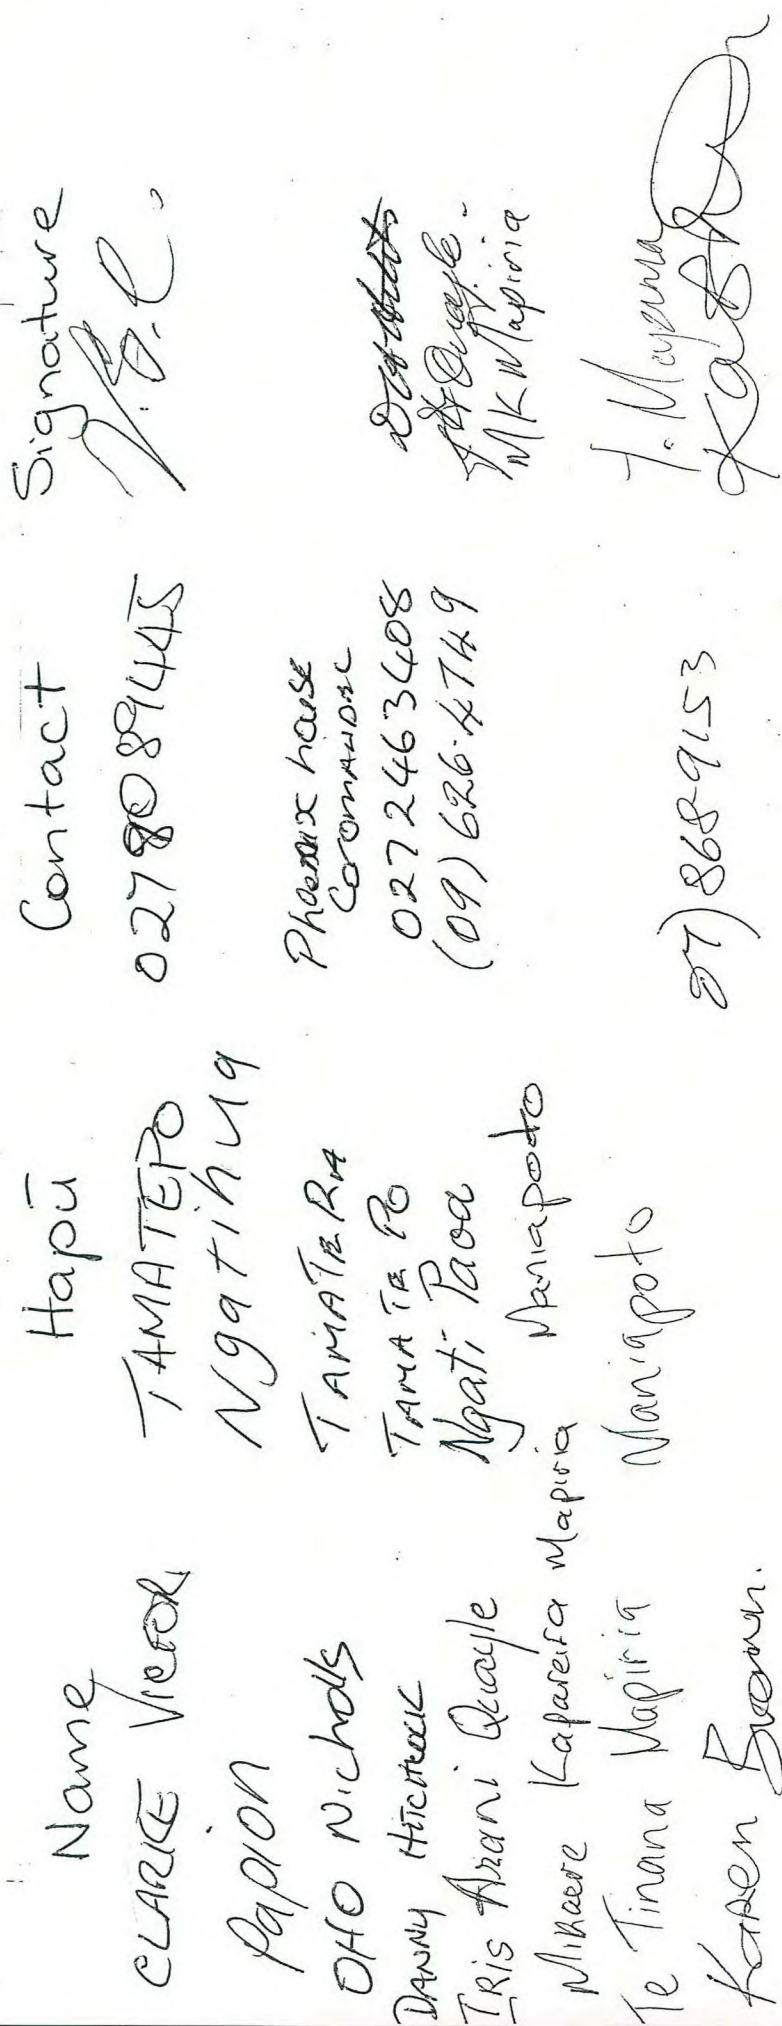 Name Hapū Contact Signature
CLARKE VICTOR TAMATEPO 0279089445
Papion Ngatihua
OHO Nicholls TAMATERA Phoenix house
Coromandel
DANNY Hitchcock TAMATEPO 0272463408
IRIS Arani Quayle Ngati Paoa (09) 626-4749 Quayle.
Mikaere Kapareira Mapiria Maniapoto MK Mapiria
Te Tinana Mapiria Maniapoto T. Mapiria
Karen Brown. 07) 868-9153